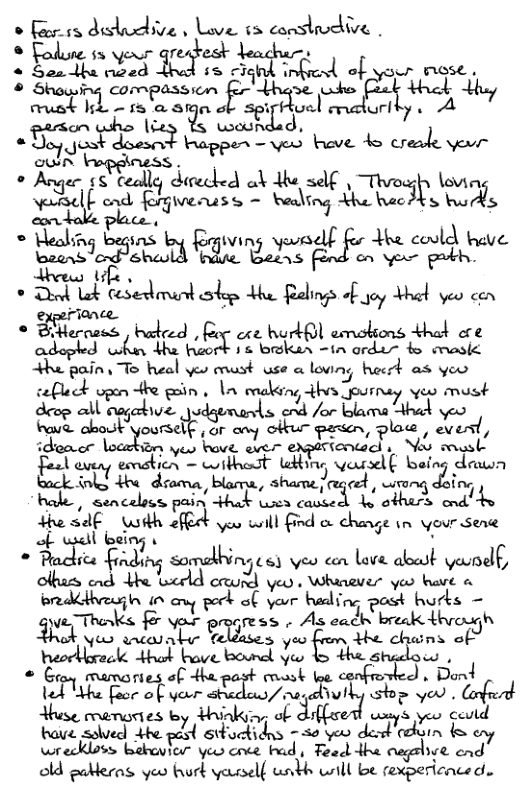 • Fear is distructive. Love is constructive.
• Failure is your greatest teacher.
• See the need that is right infront of your nose.
• Showing compassion for those who feel that they
must lie - is a sign of spiritual maturity. A
person who lies is wounded.
• Joy just doesn't happen - you have to create your
own happiness.
• Anger is really directed at the self. Through loving
yourself and forgiveness - healing the hearts hurts
can take place.
• Healing begins by forgiving yourself for the could have
beens and should have beens found on your path
threw life.
• Dont let resentment stop the feelings of joy that you can
experiance
• Bitterness, hatred, fear are hurtful emotions that are
adopted when the heart is broken - in order to mask
the pain. To heal you must use a loving heart as you
reflect upon the pain. In making this journey you must
drop all negative judgements and/or blame that you
have about yourself, or any other person, place, event,
idea or location you have ever experianced. You must
feel every emotion - without letting yourself being drawn
back into the drama, blame, shame, regret, wrong doing,
hate, senceless pain that was caused to others and to
the self with effort you will find a change in your sense
of well being.
• Practice finding something(s) you can love about yourself,
others and the world around you. Whenever you have a
breakthrough in any part of your healing past hurts -
give Thanks for your progress. As each break through
that you encounter releases you from the chains of
heartbreak that have bound you to the shadow.
• Gray memories of the past must be confronted. Dont
let the fear of your shadow/negativity stop you. Confront
these memories by thinking of different ways you could
have solved the past situations - so you dont return to any
wreckless behavior you once had. Feed the negative and
old patterns you hurt yourself with will be rexperianced.